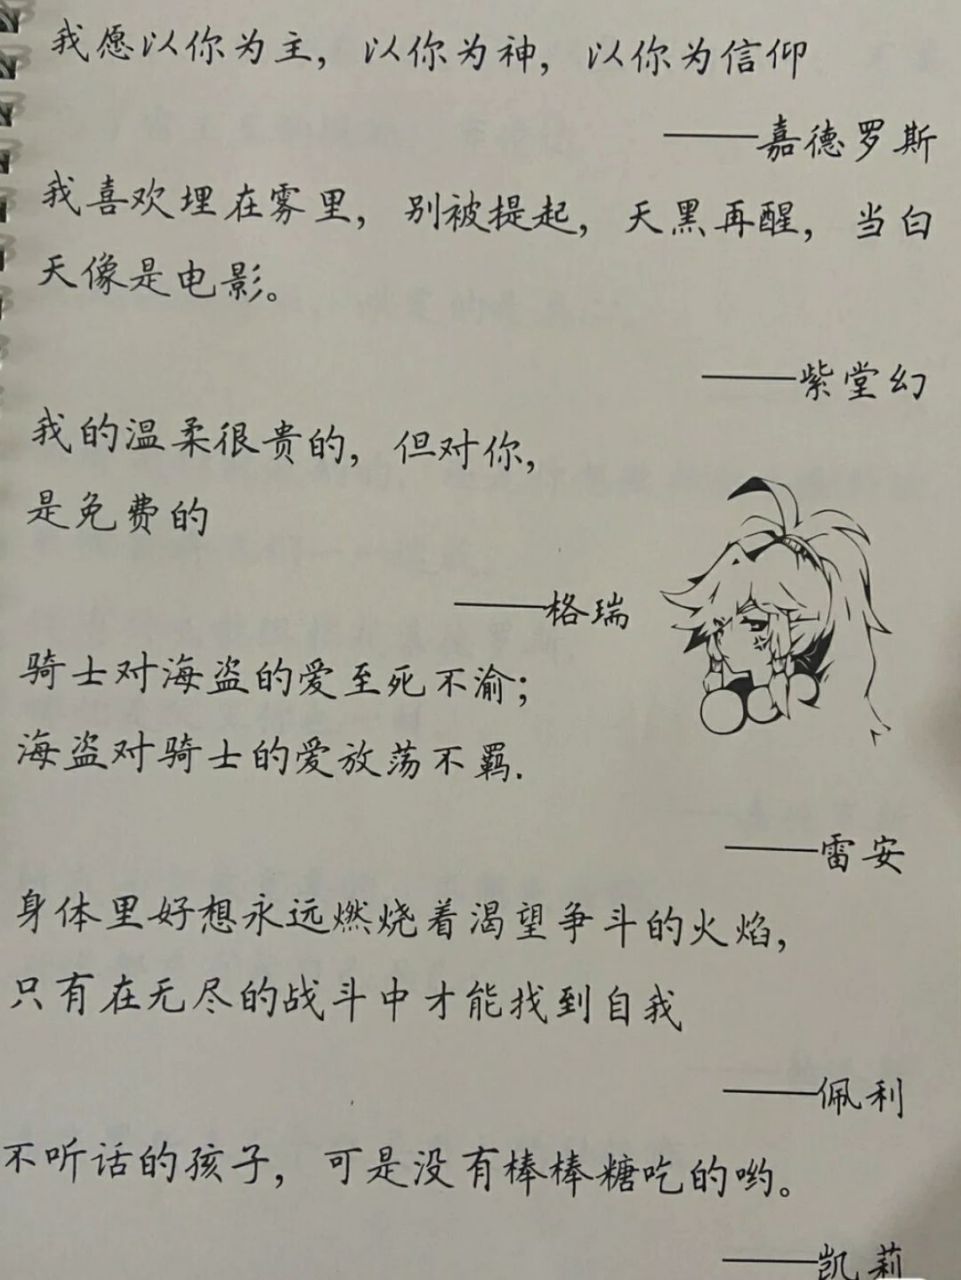 我愿以你为主，以你为神，以你为信仰
——嘉德罗斯
我喜欢埋在雾里，别被提起，天黑再醒，当白
天像是电影。
——紫堂幻
我的温柔很贵的，但对你，
是免费的
——格瑞
骑士对海盗的爱至死不渝；
海盗对骑士的爱放荡不羁.
——雷安
身体里好想永远燃烧着渴望争斗的火焰，
只有在无尽的战斗中才能找到自我
——佩利
不听话的孩子，可是没有棒棒糖吃的哟。
——凯莉